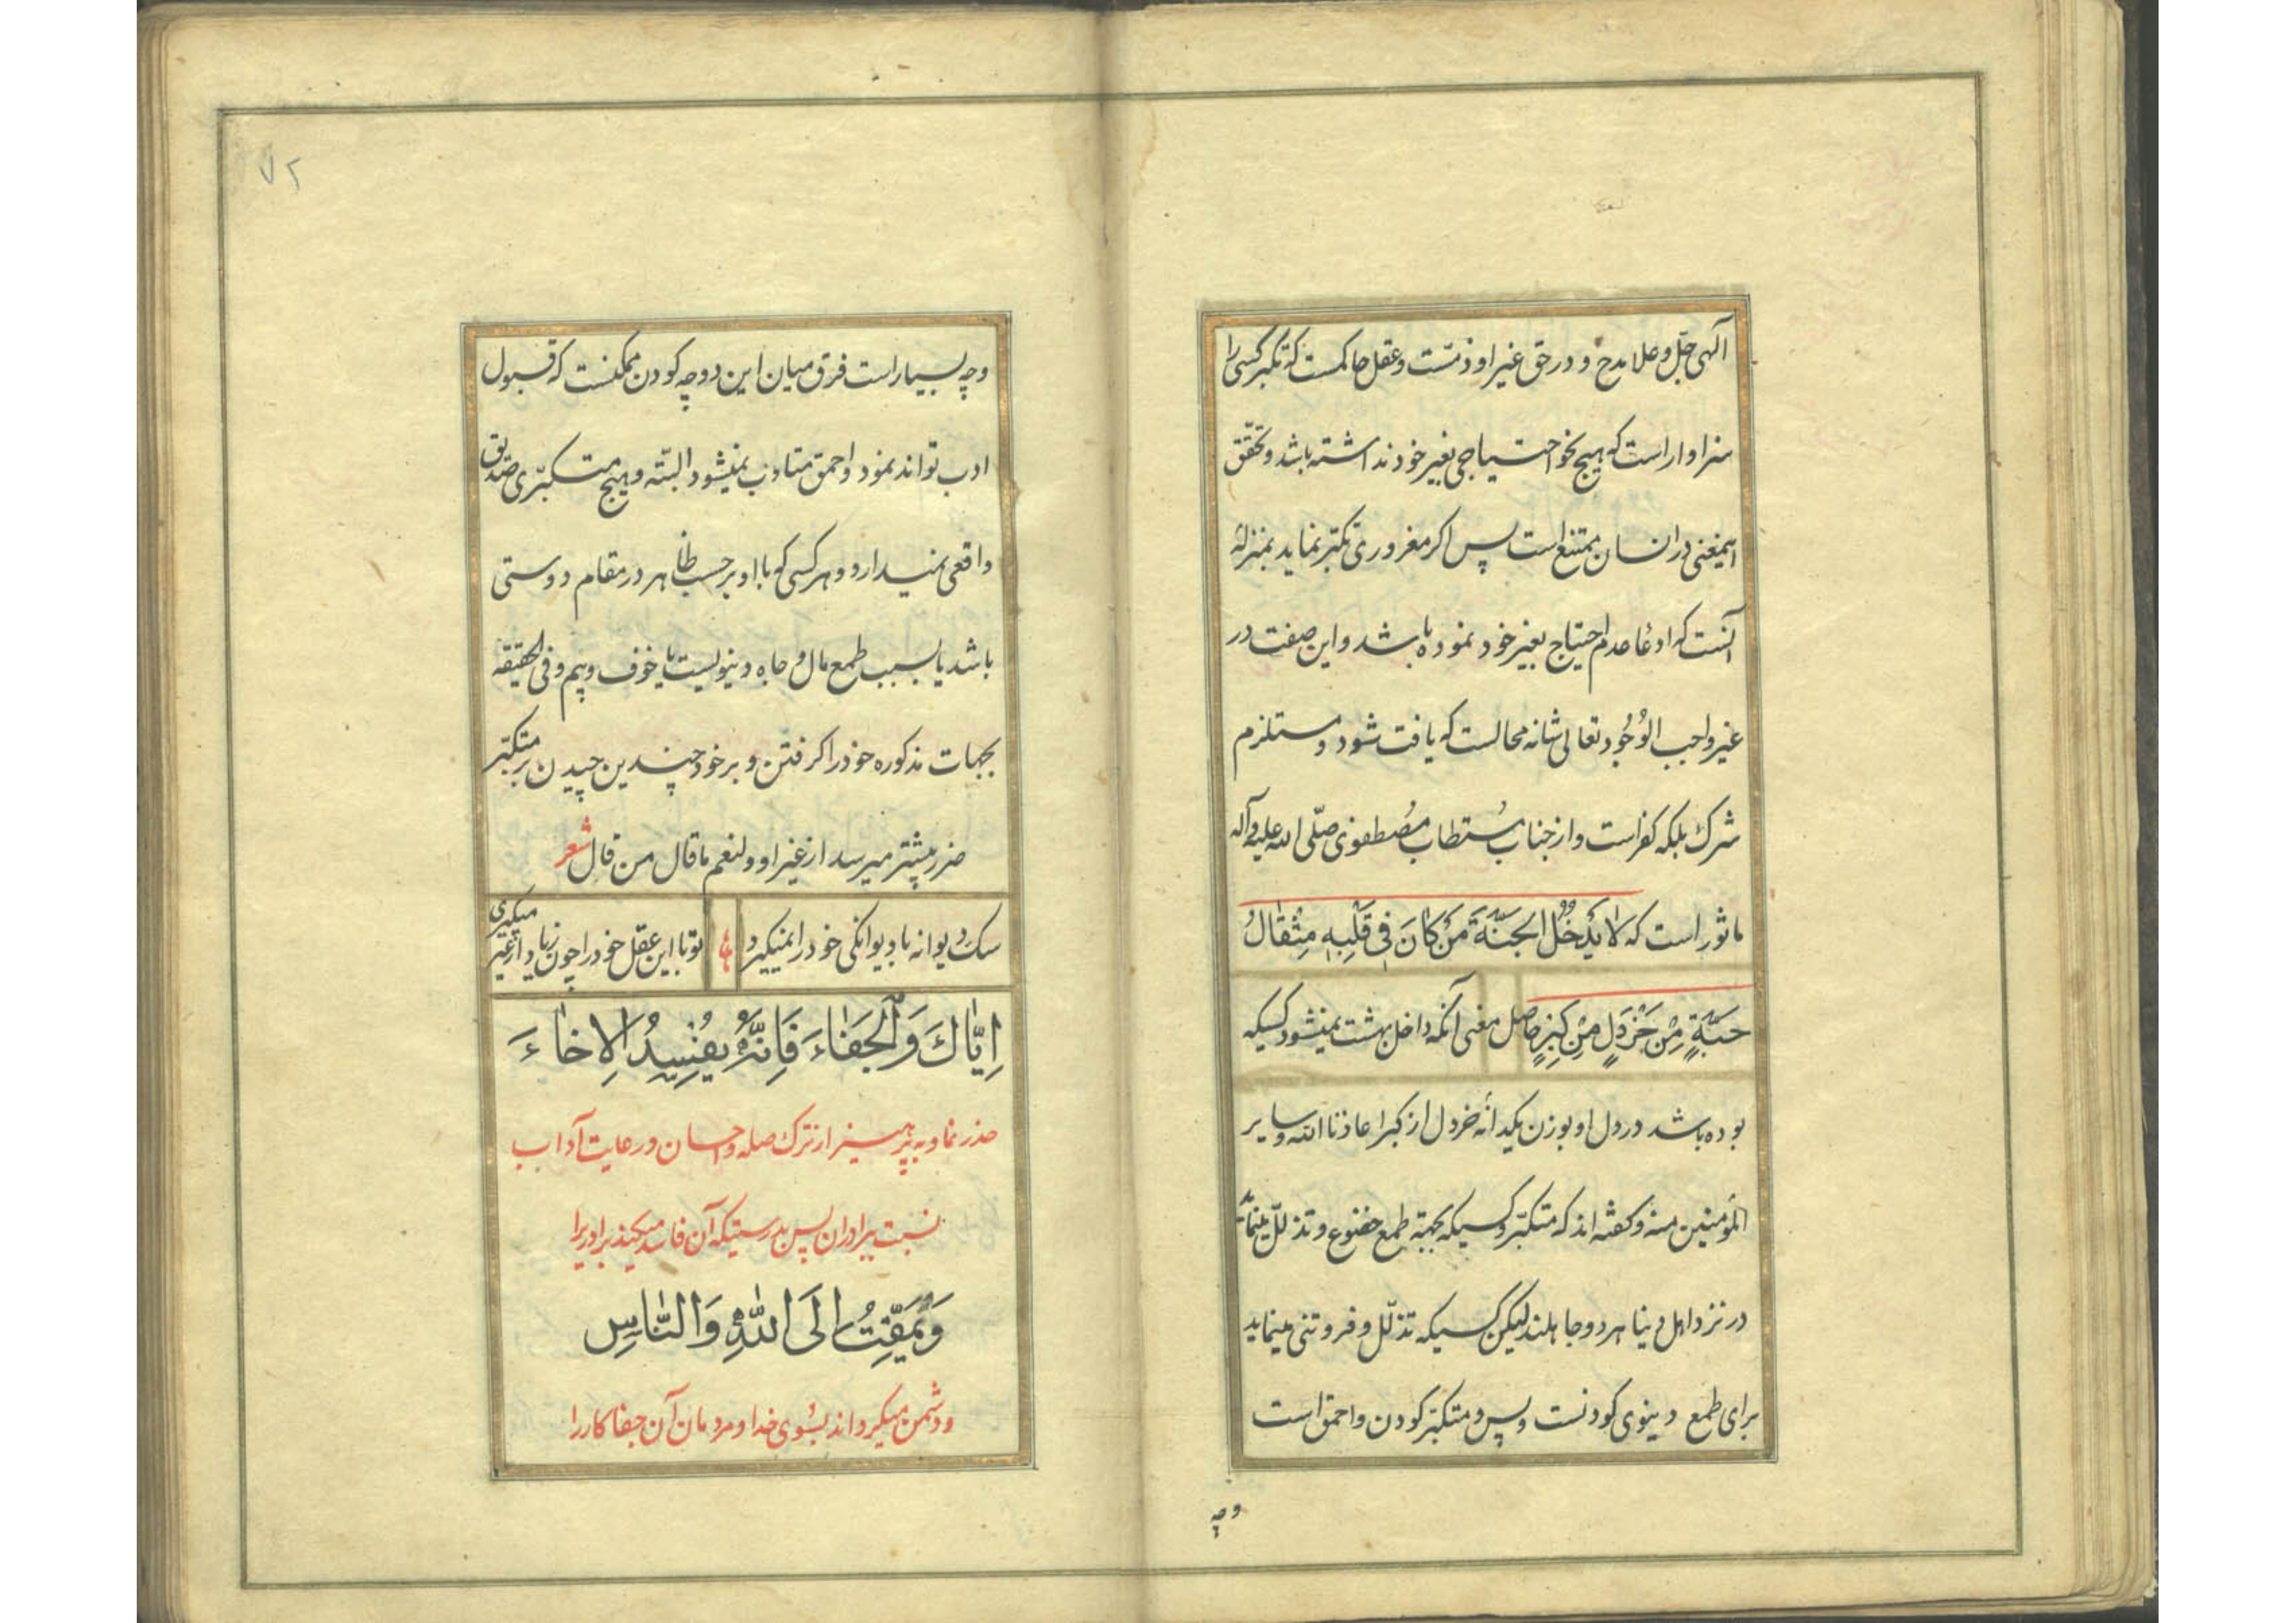 الهی جلّ و علا مدح و در حق غیر او ذمّست و عقل حاکمست که تکبر کسی را
سزاوار است که هیچ نحو احتیاجی بغیر خود نداشته باشد و تحقّق
اینمعنی در انسان ممتنع است پس اکر مغروری تکبّر نماید بمنزلهٔ
آنست که ادعا عدم احتیاج بغیر خود نموده باشد و این صفت در
غیر واجب الوُجُود تعالی شانه محالست که یافت شود و مستلزم
شرک بلکه کفر است و از جناب مُستطاب مصُطفوی صلّی الله علیه وآله
ماثور است که لا یَدْخُلُ الجَنَّةَ مَنْ کانَ فی قَلْبِهِ مِثْقالُ
حَبَّةٍ مِنْ خَرْدَلٍ مِنْ کِبْرٍ حاصل معنی آنکه داخل بهشت نمیشود کسیکه
بوده باشد در دل او بوزن یکدانه خردل از کبر اعاذنا الله و سایر
المؤمنین منه و کفته اند که متکبّر و کسیکه بجهة طمع خضوع و تذلّل مینماید
در نزد اهل دنیا هر دو جاهلند لیکن کسیکه تذلّل و فروتنی مینماید
برای طمع دنیوی کودنست و پس و متکبّر کودن و احمق است
وچه
۷۲
وچه بسیار است فرق میان این دو چه کودن ممکنست که قبول
ادب تواند نمود و احمق متادّب نمیشود البتّه و هیچ متکبّری صدیق
واقعی نمیدارد و هر کسی که با او بر حسب ظاهر در مقام دوستی
باشد یا بسبب طمع مال و جاه دنیویست یا خوف و بیم و فی الحقیقه
بجهات مذکوره خود را کرفتن و بر خود چندین چیدن بر متکبّر
ضرر بیشتر میرسد از غیر او و لنعم ما قال من قال شعر
سک دیوانه با دیوانکی خود را نمیکیرد
تو با این عقل خود را چون زیاد از غیر میکیری
اِیّاكَ وَالْجَفاءَ فَاِنَّهُ یُفْسِدُ الاِخاءَ
حذر نما و بپرهیز از ترک صله و احسان و رعایت آداب
نسبت ببرادران پس بدرستیکه آن فاسد میکند برادریرا
وَیُمَقِّتُ اِلَی اللّٰهِ وَالنّاسِ
و دشمن میکرداند بسُوی خدا و مردمان آن جفا کار را